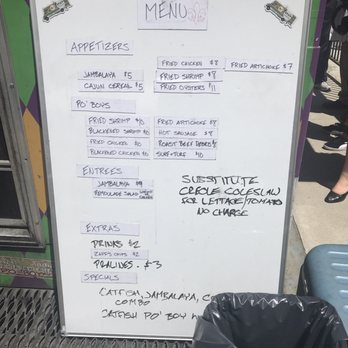 MENU
APPETIZERS
FRIED CHICKEN $8
FRIED ARTICHOKE $7
JAMBALAYA $5
FRIED SHRIMP $8
CAJUN CEREAL $5
FRIED OYSTERS $11
PO' BOYS
FRIED SHRIMP $10
FRIED ARTICHOKE $8
BLACKENED SHRIMP $10
HOT SAUSAGE $8
FRIED CHICKEN $10
ROAST BEEF DEBRIS
BLACKENED CHICKEN $10
SURF + TURF $10
ENTREES
JAMBALAYA $9
REMOULADE SALAD
SUBSTITUTE
CREOLE COLESLAW
FOR LETTACE/TOMATO
NO CHARGE
EXTRAS
DRINKS $2
ZAPPS CHIPS $2
PRALINES - $3
SPECIALS
CATFISH, JAMBALAYA,
COMBO
CATFISH PO' BOY